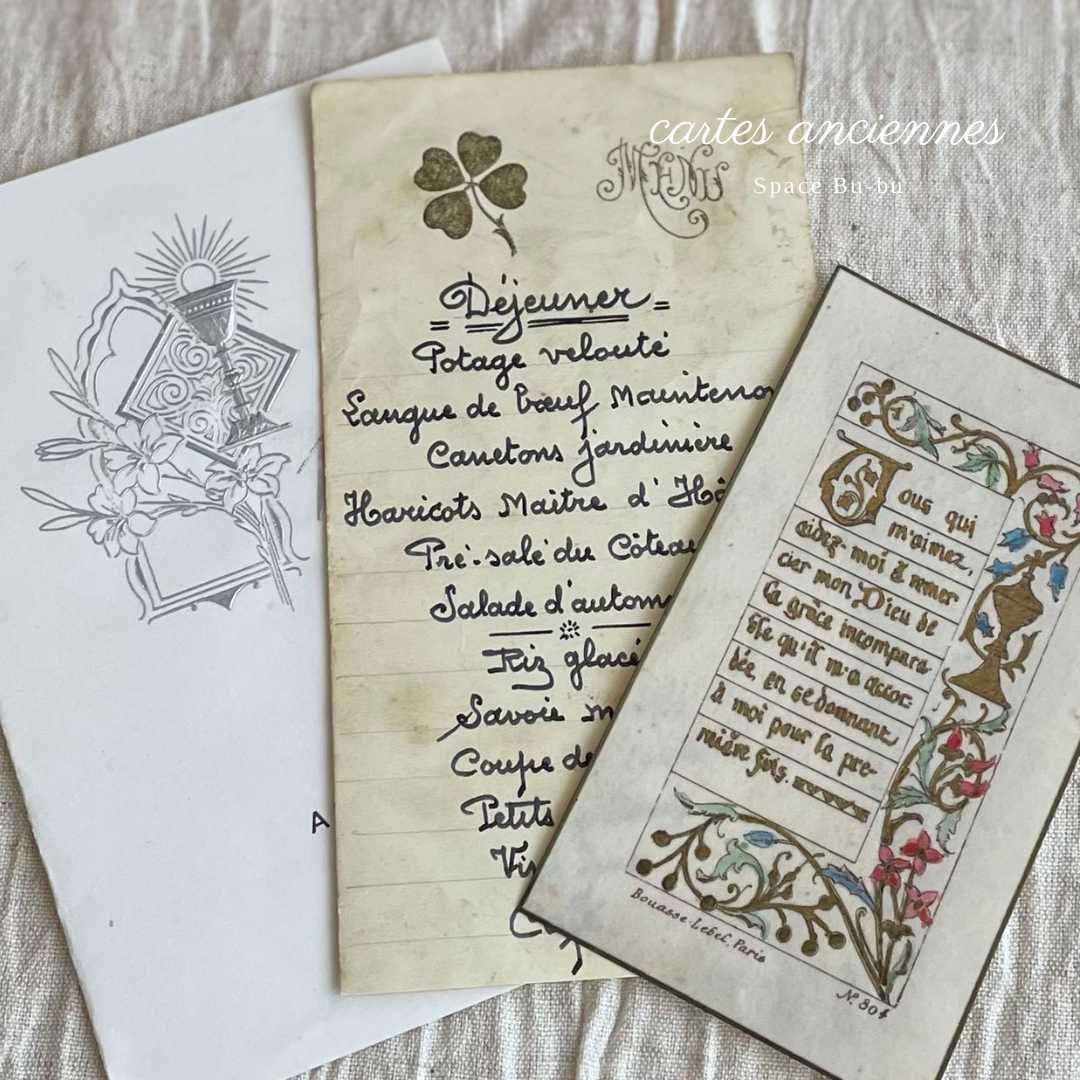 cartes anciennes
Space Bu-bu
MENU
= Déjeuner =
Potage velouté
Langue de bœuf Maintenon
Canetons jardinière
Haricots Maître d'Hô
Pré-salé du Côteau
Salade d'autom
Riz glacé
Savoie m
Coupe de
Petits
Vi
A
Vous qui
m'aimez,
aidez-moi à remer
cier mon Dieu de
la grâce incompara
ble qu'il m'a accor
dée en se donnant
à moi pour la pre-
mière fois.
Bouasse-Lebel, Paris
N. 804